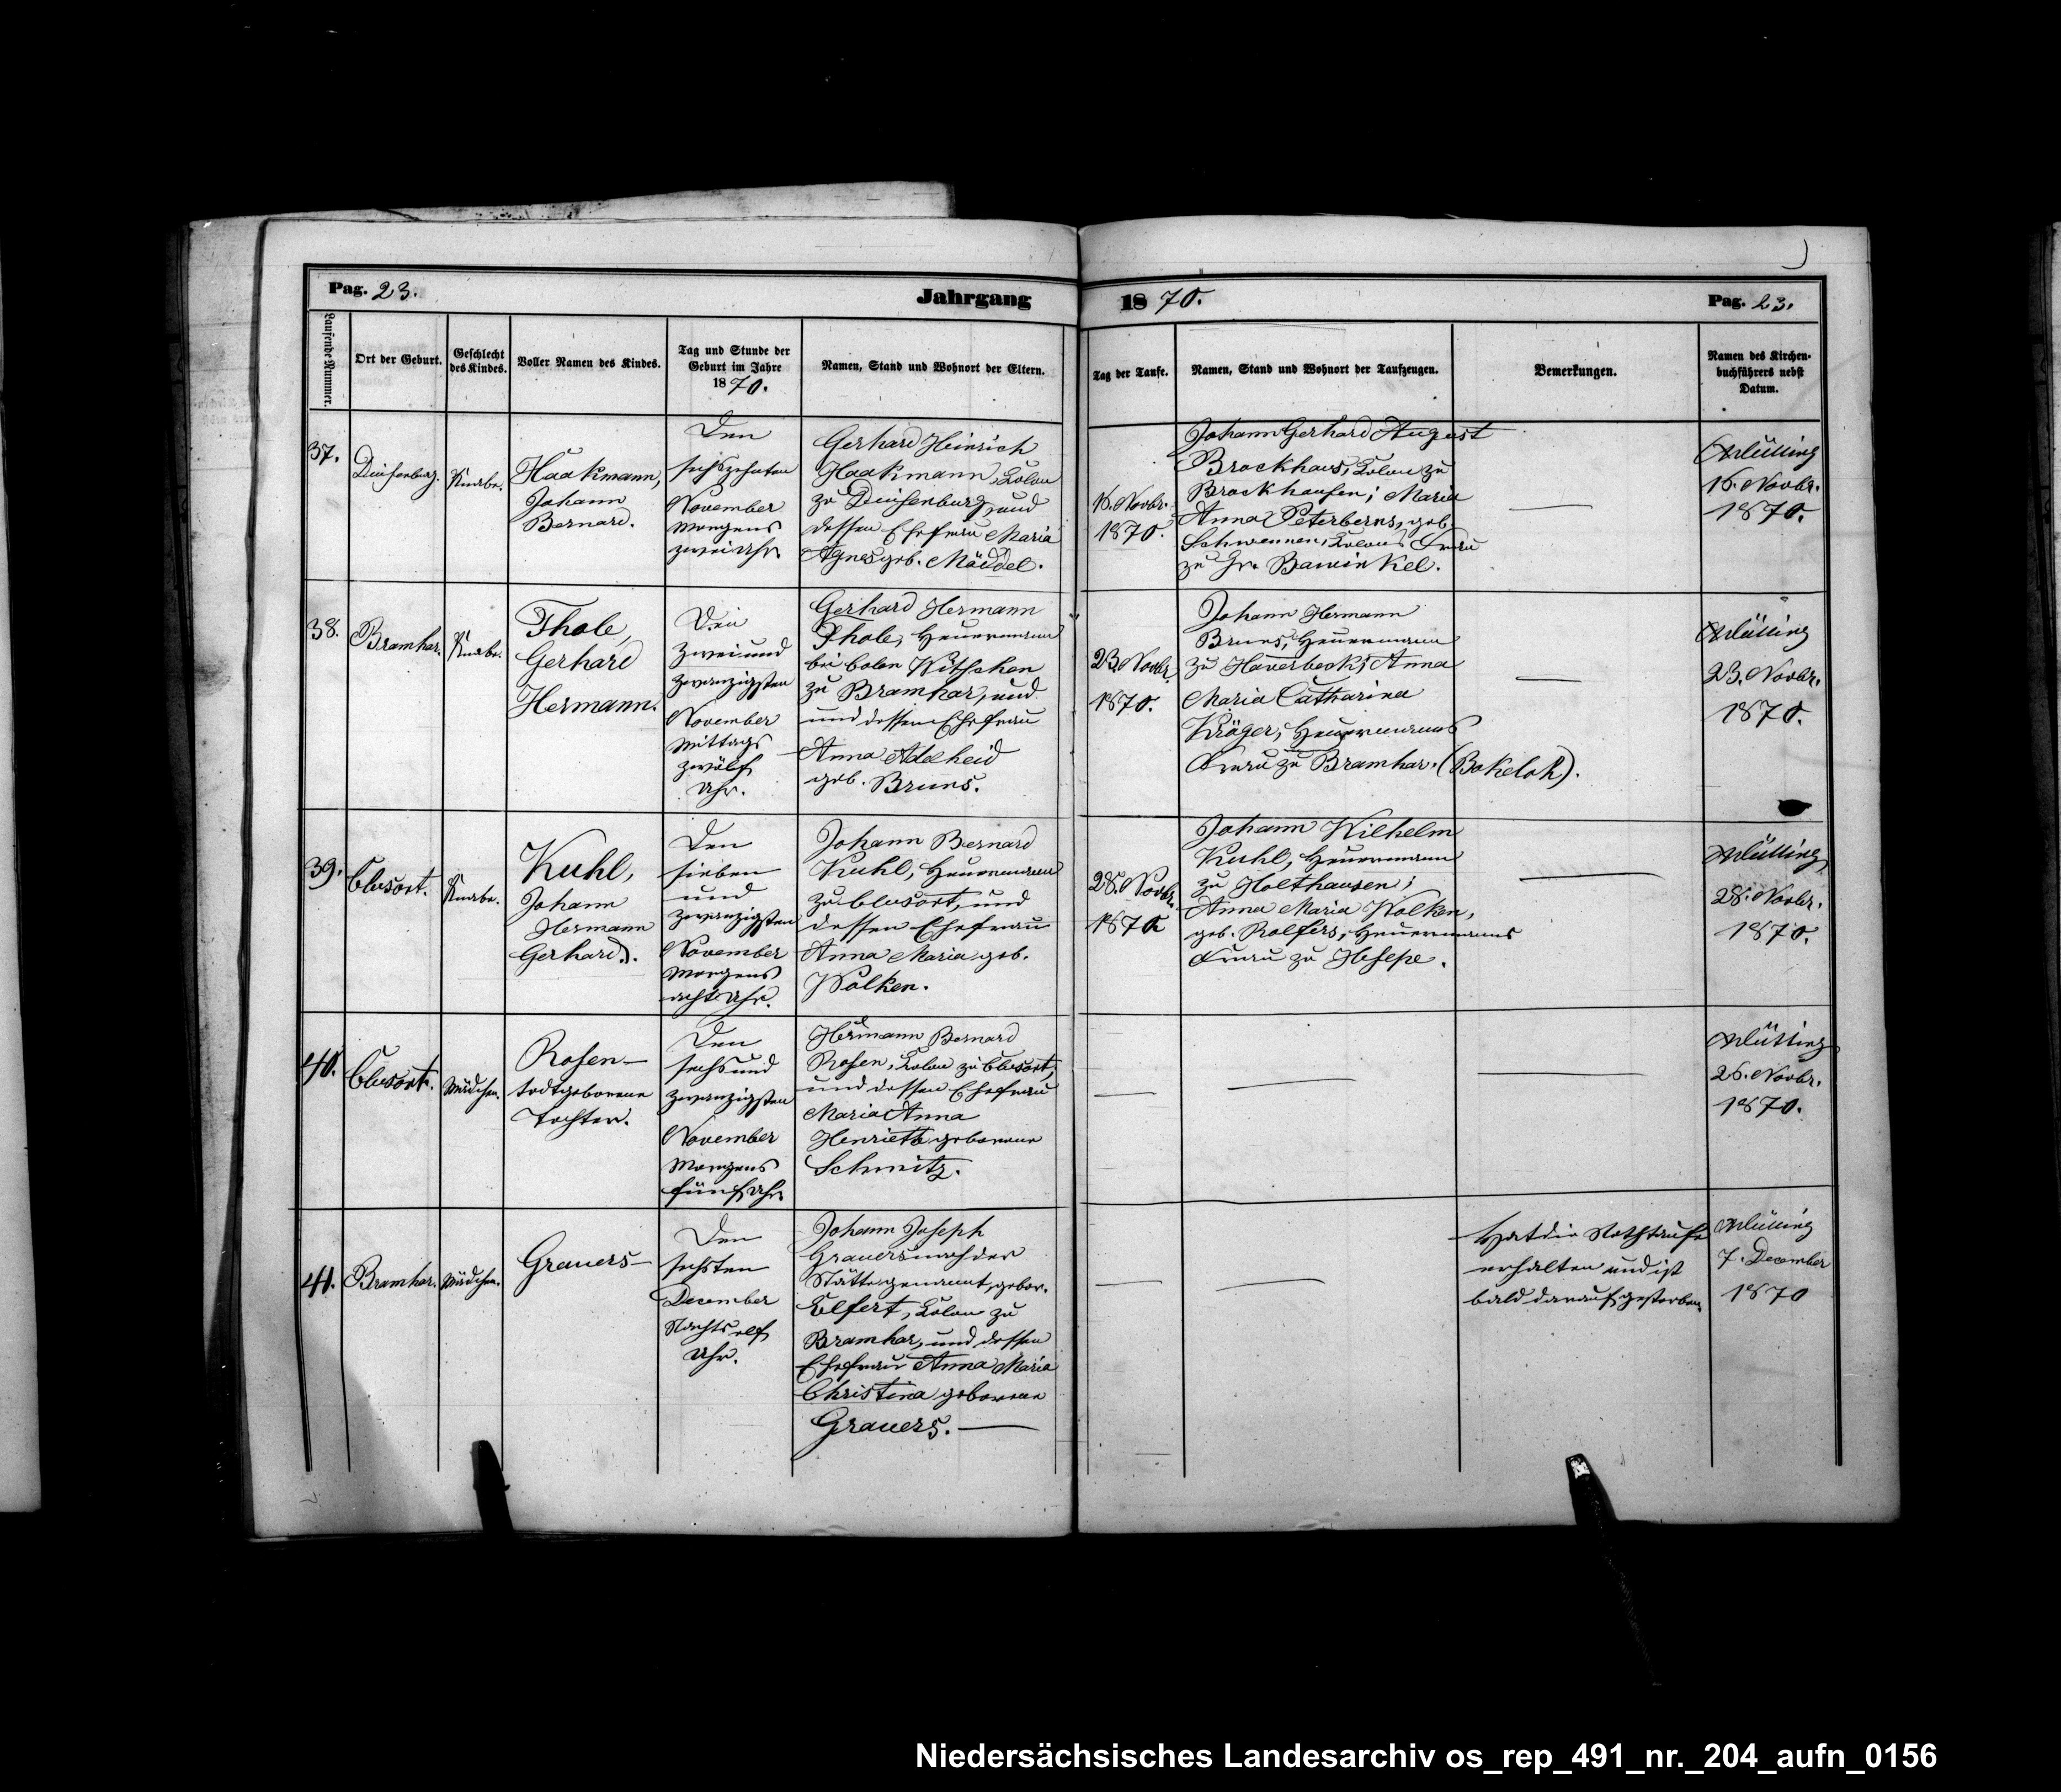 Pag. 23.
Jahrgang
1870.
Pag. 23.
Laufende Nummer.
Ort der Geburt.
Geschlecht
des Kindes.
Voller Namen des Kindes.
Tag und Stunde der
Geburt im Jahre
1870.
Namen, Stand und Wohnort der Eltern.
Tag der Taufe.
Namen, Stand und Wohnort der Taufzeugen.
Bemerkungen.
Namen des Kirchen-
buchführers nebst
Datum.
37.
Duisenburg.
Knabe.
Haakmann,
Johann
Bernard.
Den
sechszehnten
November
Morgens
zwei Uhr.
Gerhard Heinrich
Haakmann, Colon
zu Duisenburg, und
dessen Ehefrau Maria
Agnes geb. Möddel.
16. Novbr.
1870.
Johann Gerhard August
Brockhaus, Colon zu
Brockhausen; Maria
Anna Peterberns, geb.
Schwennen, Colons Frau
zu Gr. Bawinkel.
16. Novbr.
1870.
38.
Bramhar.
Knabe.
Thole,
Gerhard
Hermann.
Den
zwei und
zwanzigsten
November
Mittags
zwölf
Uhr.
Gerhard Hermann
Thole, Heuermann
bei Colon
zu Bramhar, und
und dessen Ehefrau
Anna Adelheid
geb. Bruns.
23. Novbr.
1870.
Johann Hermann
Bruns, Heuermann
zu Haverbeck; Anna
Maria Catharina
Kröger, Heuermanns
Frau zu Bramhar. (Bokeloh).
23. Novbr.
1870.
39.
Clusort.
Knabe.
Kuhl,
Johann
Hermann
Gerhard.
Den
sieben
und
zwanzigsten
November
Morgens
acht Uhr.
Johann Bernard
Kuhl, Heuermann
zu Clusort, und
dessen Ehefrau
Anna Maria geb.
Wolken.
28. Novbr.
1870.
Johann Wilhelm
Kuhl, Heuermann
zu Holthausen;
Anna Maria Wolken,
geb. Rolfers, Heuermanns
Frau zu Hesepe.
28. Novbr.
1870.
40.
Clusort.
Mädchen.
Rosen-
todtgeborene
Tochter.
Den
sechs und
zwanzigsten
November
Morgens
fünf Uhr.
Hermann Bernard
Rosen, Colon zu Clusort,
und dessen Ehefrau
Maria Anna
Henriette geborene
Schmitz.
26. Novbr.
1870.
41.
Bramhar.
Mädchen.
Grauers-
Den
sechsten
December
Nachts elf
Uhr.
Johann Joseph
Grauers nach der
Stätte genannt, gebor.
Elfert, Colon zu
Bramhar, und dessen
Ehefrau Anna Maria
Christina geborene
Grauers.
Hat die Nothtaufe
erhalten und ist
bald darauf gestorben.
7. December
1870
Niedersächsisches Landesarchiv os_rep_491_nr._204_aufn_0156